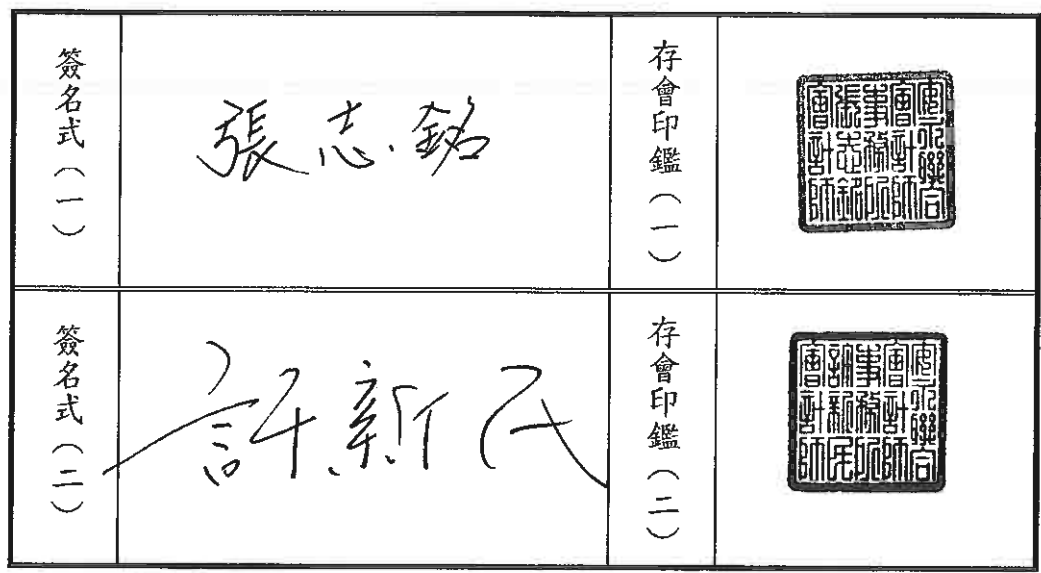 簽名式(一)
張志銘
存會印鑑(一)
安永聯合
會計師
事務所
張志銘
會計師
簽名式(二)
許新民
存會印鑑(二)
安永聯合
會計師
事務所
許新民
會計師